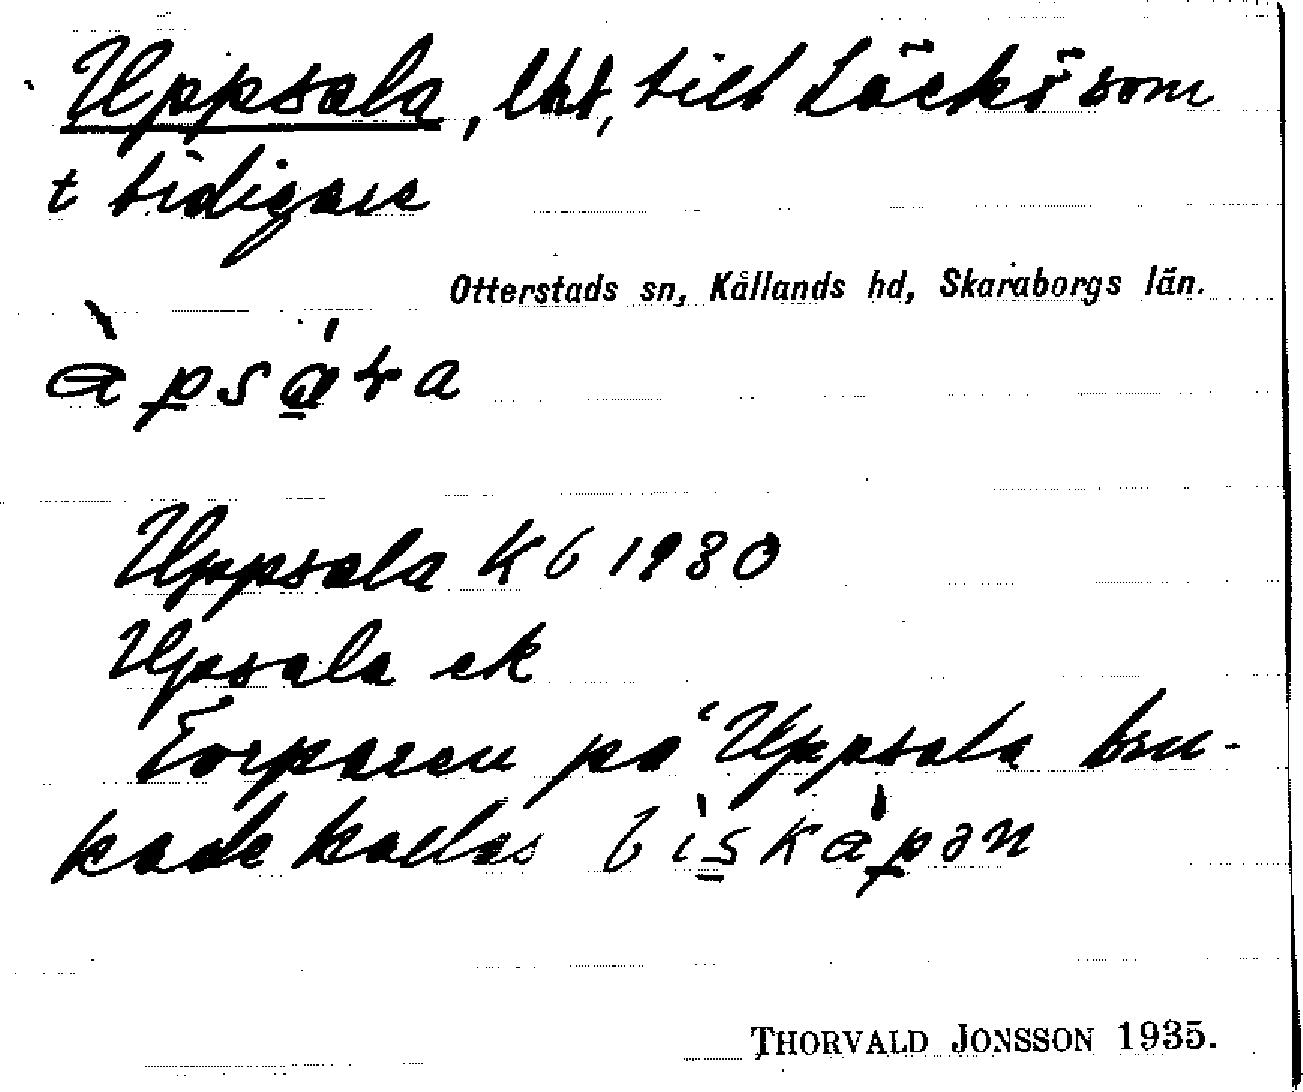 Uppsala, lht, till Läckö som
t tidigare
Otterstads sn, Kållands hd, Skaraborgs län.
àpsáta
Uppsala Kb 1930
Upsala ek
Torparen på Uppsala bru-
kade kallas bìskápən
THORVALD JONSSON 1935.